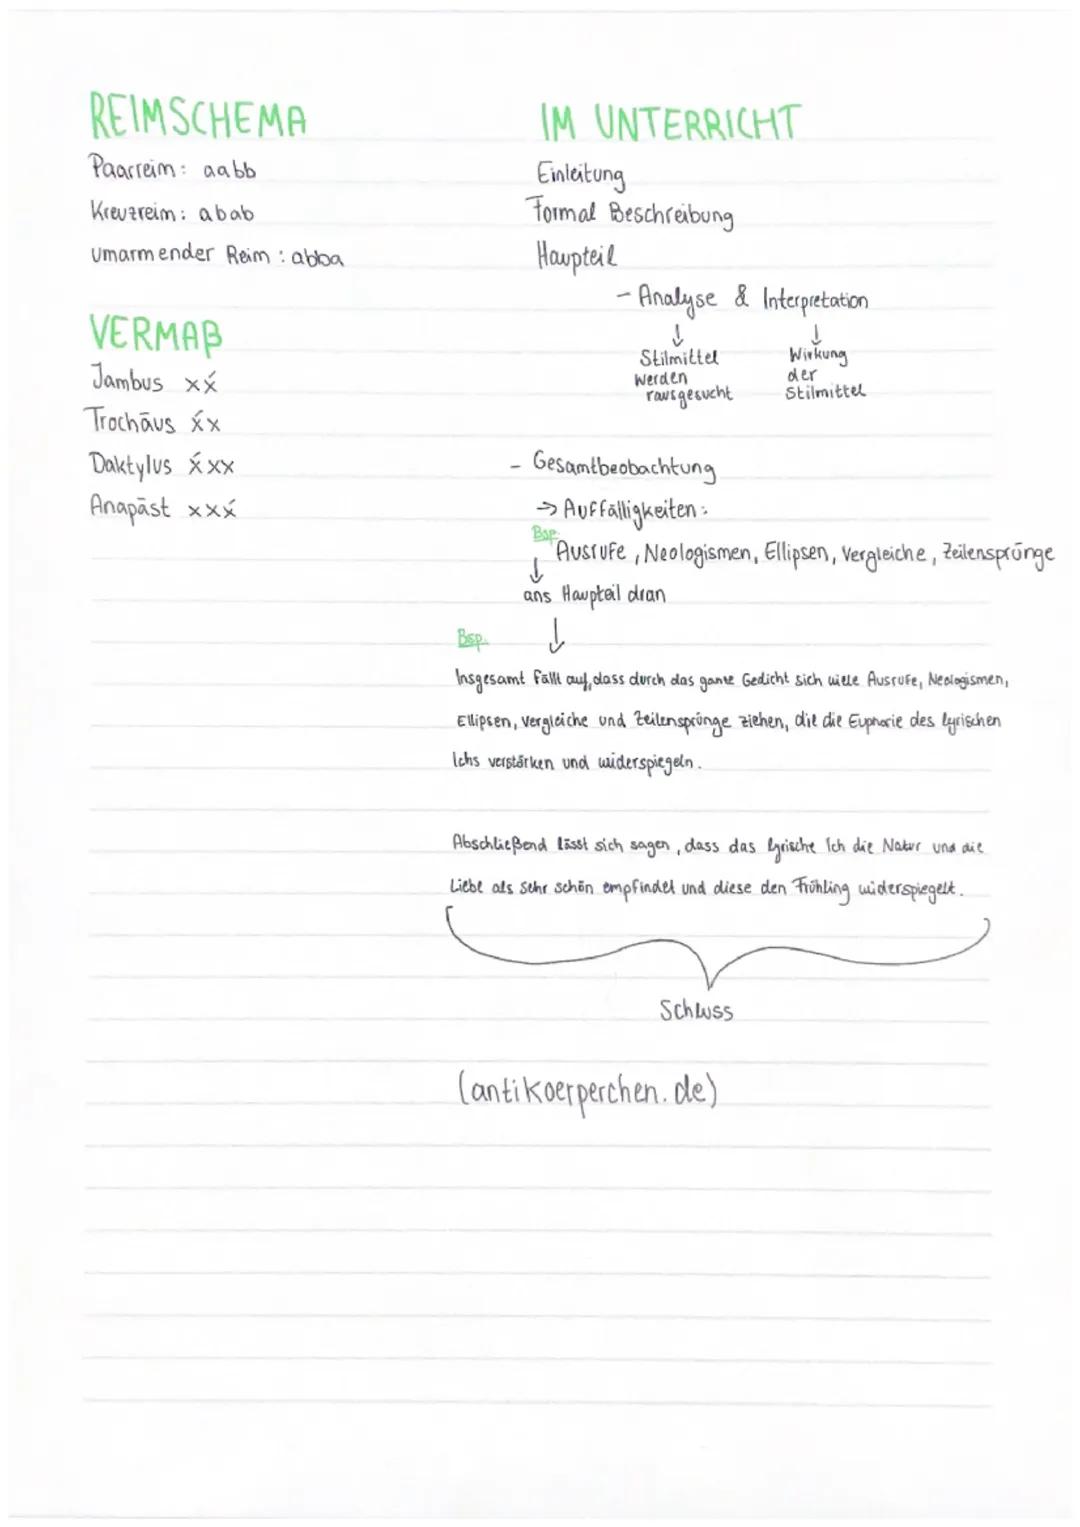 REIMSCHEMA
Paarreim: aabb
Kreuzreim: abab
umarmender Reim: abba
VERMAß
Jambus xx́
Trochäus x́x
Daktylus x́xx
Anapäst xxx́
IM UNTERRICHT
Einleitung
Formal Beschreibung
Haupteil
- Analyse & Interpretation
↓ ↓
Stilmittel Wirkung
werden der
rausgesucht Stilmittel
- Gesamtbeobachtung
→ Auffälligkeiten:
Bsp.
Ausrufe, Neologismen, Ellipsen, Vergleiche, Zeilensprünge
↓
ans Haupteil dran
Bsp. ↓
Insgesamt fällt auf, dass durch das ganze Gedicht sich viele Ausrufe, Neologismen,
Ellipsen, Vergleiche und Zeilensprünge ziehen, die die Euphorie des lyrischen
Ichs verstärken und widerspiegeln.
Abschließend lässt sich sagen, dass das lyrische Ich die Natur und die
Liebe als sehr schön empfindet und diese den Frühling widerspiegelt.
Schluss
(antikoerperchen.de)